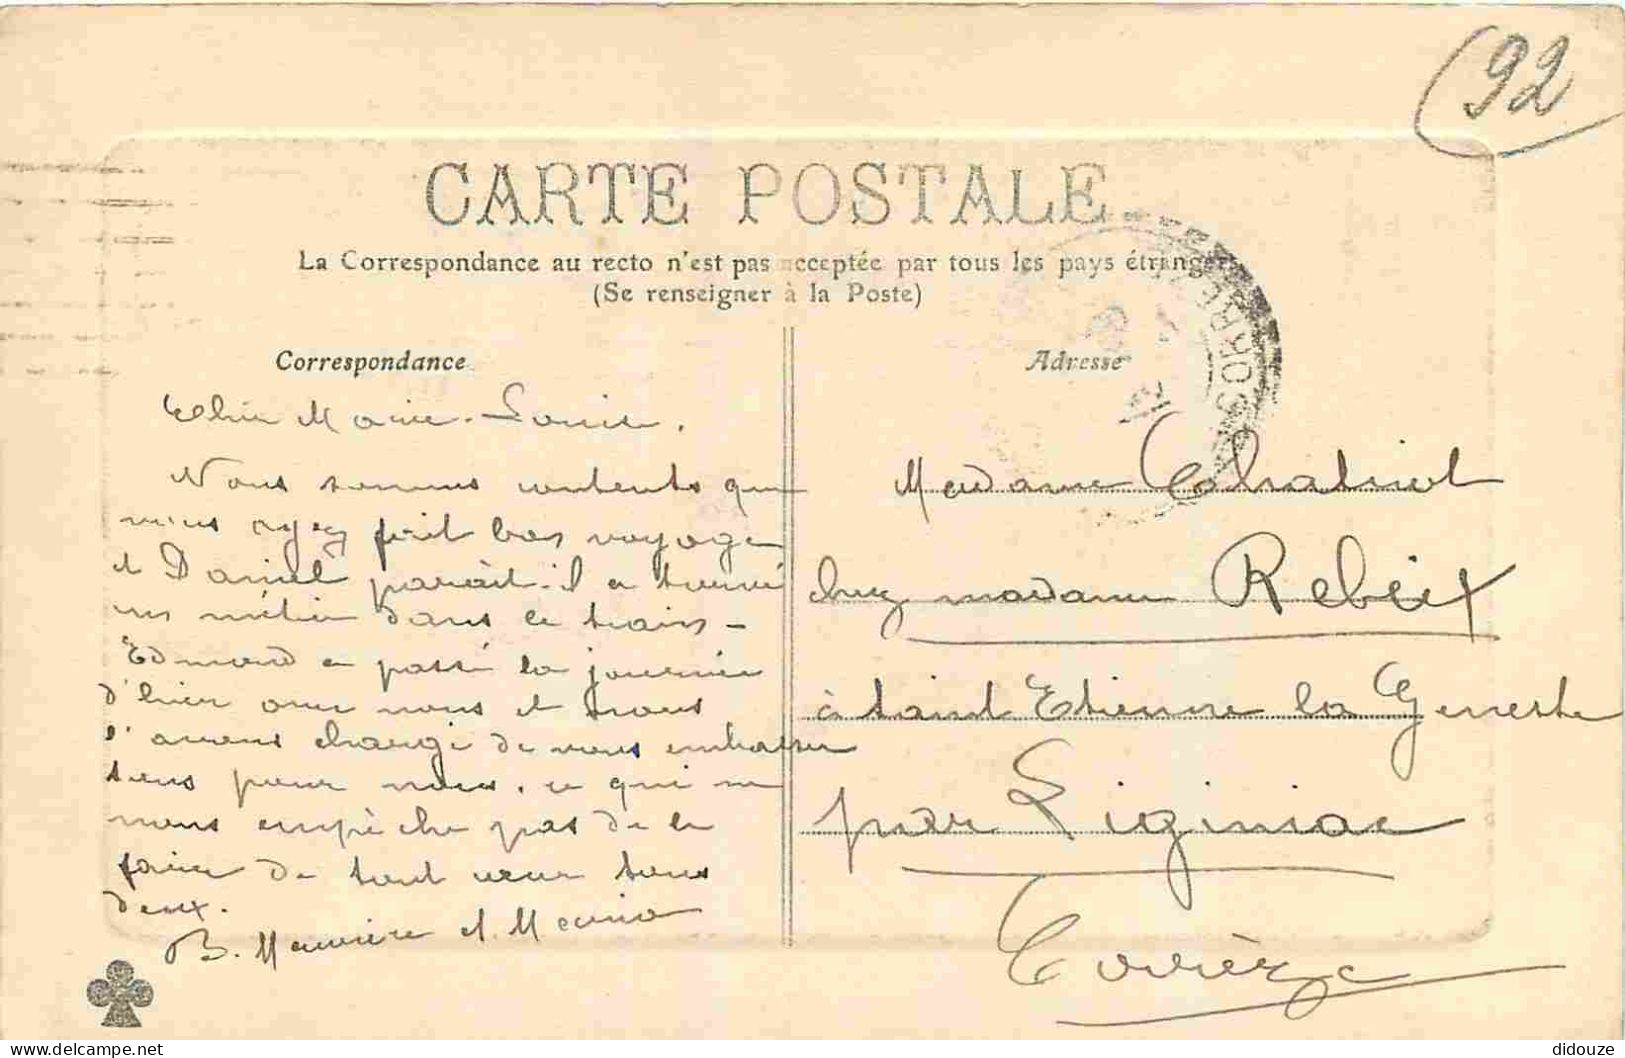 (92
CARTE POSTALE
La Correspondance au recto n'est pas acceptée par tous les pays étrangers
(Se renseigner à la Poste)
Correspondance
Adresse
CORRÈZE
Chère Marie-Louise.
Nous sommes contents que
vous ayez fait bon voyage
et Daniel paraît-il a trouvé
un métier dans le train —
Edmond a passé la journée
d'hier avec nous et nous
l'avons chargé de vous embrasser
tous pour nous. ce qui ne
nous empêche pas de le
faire de tout cœur tous
deux.
B. et
Madame Chatinot
chez madame Rebeix
à saint Etienne la Geneste
par Liginiac
Corrèze
©delcampe.net
didouze